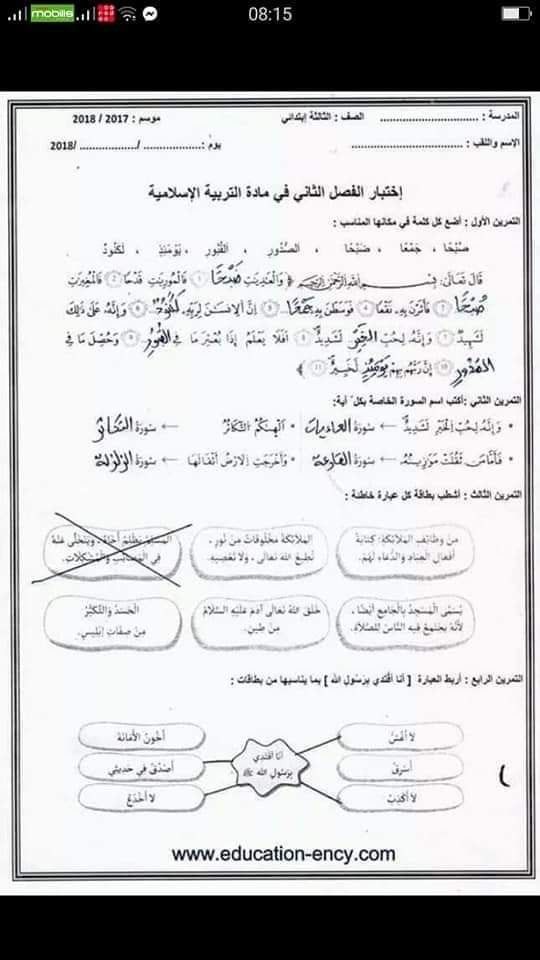 mobilis
08:15
المدرسة : .............................. الصف : الثالثة إبتدائي موسم : 2017 / 2018
الإسم واللقب : .............................. يوم :................/................/2018
إختبار الفصل الثاني في مادة التربية الإسلامية
التمرين الأول : أضع كل كلمة في مكانها المناسب :
صُبْحًا ، جَمْعًا ، ضَبْحًا ، الصُّدُورِ ، القُبُورِ ، يَوْمَئِذٍ ، لَكَنُودٌ
قال تعالى: بِسْمِ اللهِ الرَّحْمَنِ الرَّحِيمِ ﴿ وَالْعَدِيَتِ ضَبْحًا ١ فَالْمُورِيَتِ قَدْحًا ٢ فَالْمُغِيرَتِ
صُبْحًا ٣ فَأَثَرْنَ بِهِ نَقْعًا ٤ فَوَسَطْنَ بِهِ جَمْعًا ٥ إِنَّ الْإِنسَنَ لِرَبِّهِ لَكَنُودٌ ٦ وَإِنَّهُ عَلَى ذَلِكَ
لَشَهِيدٌ ٧ وَإِنَّهُ لِحُبِّ الخَيْرِ لَشَدِيدٌ ٨ أَفَلَا يَعْلَمُ إِذَا بُعْثِرَ مَا فِي القُبُورِ ٩ وَحُصِّلَ مَا فِي
الصُّدُورِ ١٠ إِنَّ رَبَّهُم بِهِمْ يَوْمَئِذٍ لَخَبِيرٌ ١١ ﴾
التمرين الثاني :أكتب اسم السورة الخاصة بكل آية:
• وَإِنَّهُ لِحُبِّ الْخَيْرِ لَشَدِيدٌ ← سورة العاديات • أَلْهَىكُمُ التَّكَاثُرُ ← سورة التكاثر
• فَأَمَّا مَن ثَقُلَتْ مَوَزِينُهُ ← سورة القارعة • وَأَخْرَجَتِ الْأَرْضُ أَثْقَالَهَا ← سورة الزلزلة
التمرين الثالث : أشطب بطاقة كل عبارة خاطئة :
من وظائف الملائكة: كتابة
أفعال العباد والدعاء لهم.
الملائكة مخلوقات من نور،
تطيع الله تعالى، ولا تعصيه.
المسلم يظلم أخاه، ويتخلى عنه
في المصائب والمشكلات.
يُسمى المسجد بالجامع أيضا،
لأنه يجتمع فيه الناس للصلاة.
خلق الله تعالى آدم عليه السلام
من طين.
الحسد والتكبر
من صفات إبليس.
التمرين الرابع : أربط العبارة [ أنا أقتدي برسول الله ] بما يناسبها من بطاقات :
لا أغش
أسرق
لا أكذب
أنا أقتدي
برسول الله ﷺ
أخون الأمانة
أصدق في حديثي
لا أخدع
www.education-ency.com